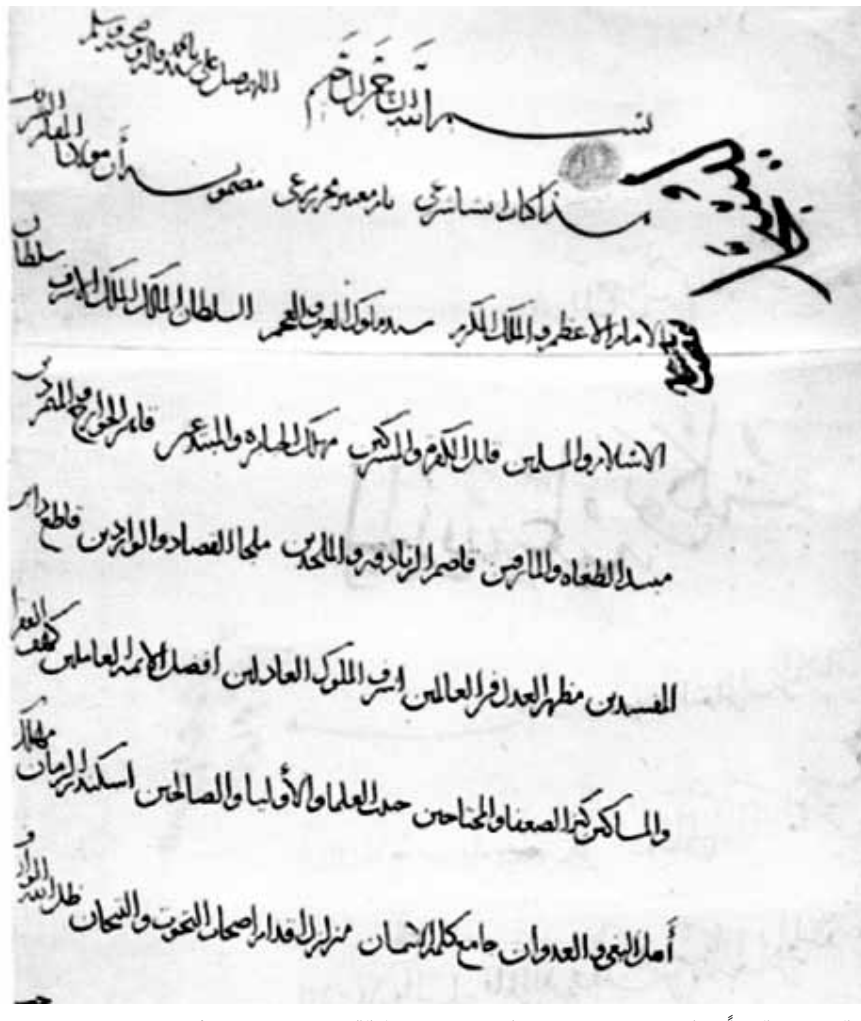 بسم الله الرحمن الرحيم اللهم صل على سيدنا محمد واله وصحبه وسلم
هذا كتاب انشا شرعي معتبر محرر مرعي مضمونه أن مولانا المقام الشريف
الامام الاعظم والملك المكرم سيد ملوك العرب والعجم السلطان الملك الملك الاشرف سلطان
الاسلام والمسلمين قاتل الكفره والمشركين مهلك الجبابره والمبتدعين قاهر الخوارج والمتمردين
مبيد الطغاه والمارقين قاصم الزنادقه والملحدين ملجا القصاد والواردين قاطع دابر
المفسدين مظهر العدل في العالمين اشرف الملوك العادلين افضل الائمه العاملين كهف الفقرا
والمساكين كنز الضعفا والمحتاجين حبيب العلما والأوليا والصالحين اسكندر الزمان مهلك
أهل البغي والعدوان جامع كلمه الايمان منزل اقدار اصحاب التخوت والتيجان ظل الله الوارف